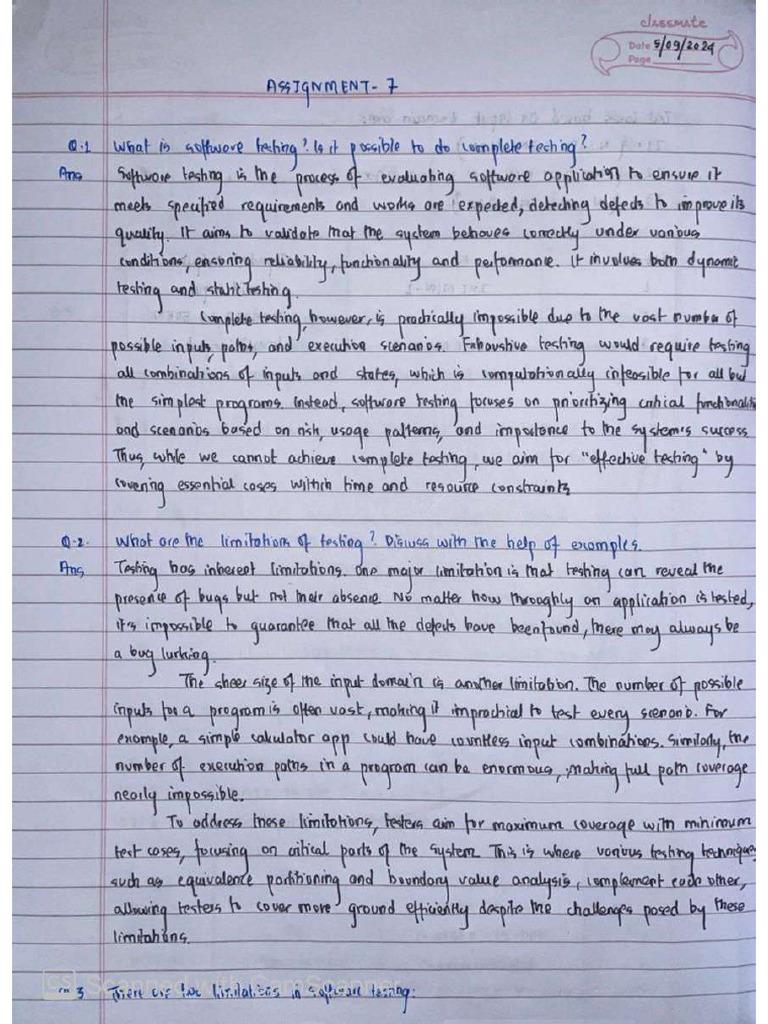 classmate
Date 5/09/2024
Page
ASSIGNMENT-7
Q.1 What is software testing? Is it possible to do complete testing?
Ans Software testing is the process of evaluating software application to ensure it
meets specified requirements and works are expected, detecting defects to improve its
quality. It aims to validate that the system behaves correctly under various
conditions, ensuring reliability, functionality and performance. It involves both dynamic
testing and static testing.
Complete testing, however, is practically impossible due to the vast number of
possible inputs, paths, and execution scenarios. Exhaustive testing would require testing
all combinations of inputs and states, which is computationally infeasible for all but
the simplest programs. Instead, software testing focuses on prioritizing critical functionaliti
and scenarios based on risk, usage patterns, and importance to the system's success.
Thus, while we cannot achieve complete testing, we aim for "effective testing" by
covering essential cases within time and resource constraints
Q.2. What are the limitations of testing? Discuss with the help of examples.
Ans Testing has inherent limitations. One major limitation is that testing can reveal the
presence of bugs but not their absence. No matter how throughly an application is tested,
it's impossible to guarantee that all the defects have been found, there may always be
a bug lurking.
The sheer size of the input domain is another limitation. The number of possible
inputs for a program is often vast, making it impractical to test every scenario. For
example, a simple calculator app could have countless input combinations. Similarly, the
number of execution paths in a program can be enormous, making full path coverage
nearly impossible.
To address these limitations, testers aim for maximum coverage with minimum
test cases, focusing on critical parts of the system. This is where various testing techniques
such as equivalence partitioning and boundary value analysis, complement each other,
allowing testers to cover more ground efficiently despite the challenges posed by these
limitations.
CS Scanned with CamScanner
3 There are two limitations in software testing: